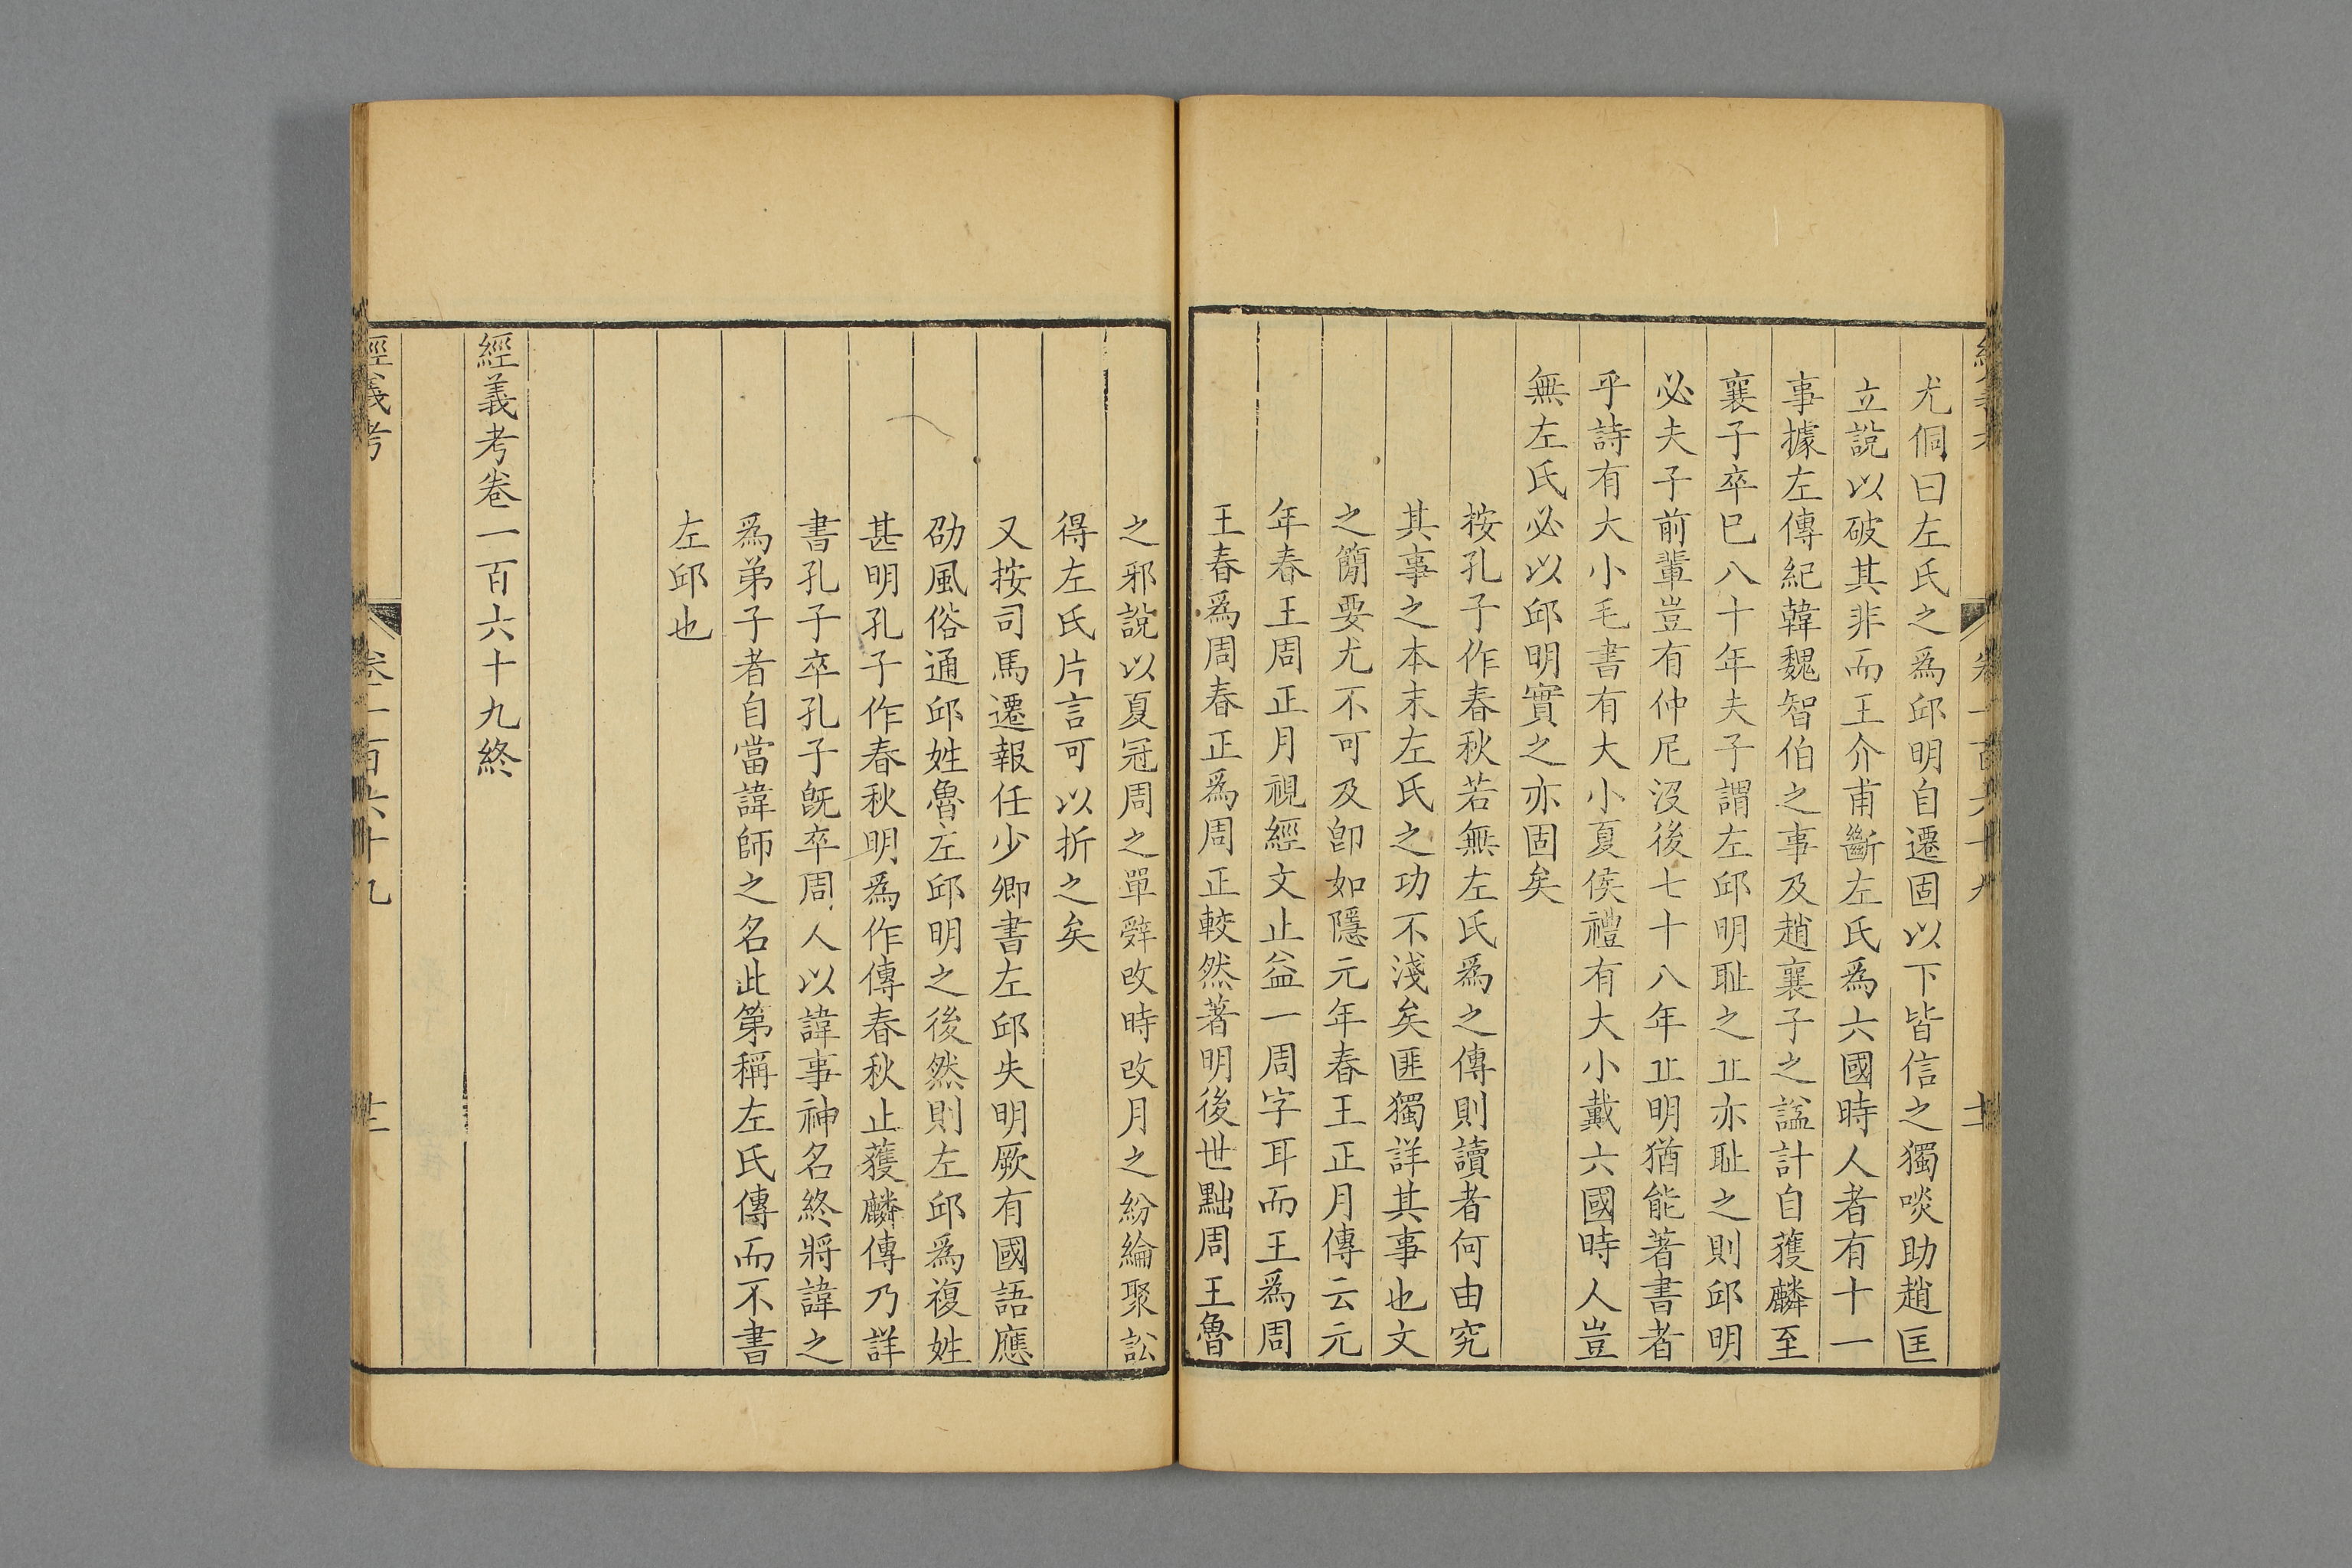 尤侗曰左氏之爲邱明自遷固以下皆信之獨啖助趙匡
立說以破其非而王介甫斷左氏爲六國時人者有十一
事據左傳紀韓魏智伯之事及趙襄子之謚計自獲麟至
襄子卒巳八十年夫子謂左邱明耻之丘亦耻之則邱明
必夫子前輩豈有仲尼沒後七十八年丘明猶能著書者
乎詩有大小毛書有大小夏侯禮有大小戴六國時人豈
無左氏必以邱明實之亦固矣
按孔子作春秋若無左氏爲之傳則讀者何由究
其事之本末左氏之功不淺矣匪獨詳其事也文
之簡要尤不可及卽如隱元年春王正月傳云元
年春王周正月視經文止益一周字耳而王爲周
王春爲周春正爲周正較然著明後世黜周王魯
之邪說以夏冠周之單辭改時改月之紛綸聚訟
得左氏片言可以折之矣
又按司馬遷報任少卿書左邱失明厥有國語應
劭風俗通邱姓魯左邱明之後然則左邱爲複姓
甚明孔子作春秋明爲作傳春秋止獲麟傳乃詳
書孔子卒孔子旣卒周人以諱事神名終將諱之
爲弟子者自當諱師之名此第稱左氏傳而不書
左邱也
經義考卷一百六十九終
經義考
卷一百六十九